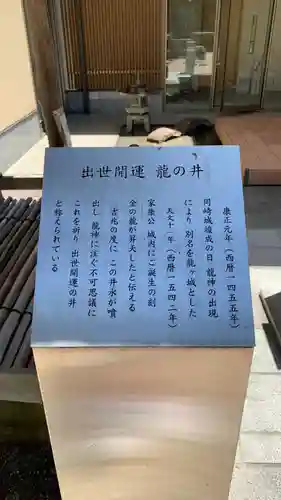 出世開運 龍の井
康正元年(西暦一四五五年)
岡崎城竣成の日 龍神の出現
により 別名を龍ヶ城とした
天文十一年(西暦一五四二年)
家康公 城内にご誕生の刻
金の龍が昇天したと伝える
吉兆の度に この井水が噴
出し 龍神に注ぐ不可思議に
これを祈り 出世開運の井
と称えられている